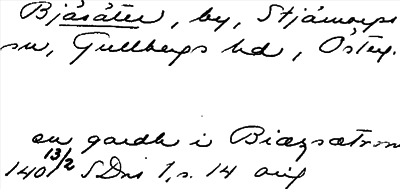 Bjäsäter, by, Stjärnorps
sn, Gullbergs hd, Österg.
en gardh i Biæzsætrom
1401 13/2 SDns 1, s. 14 orig